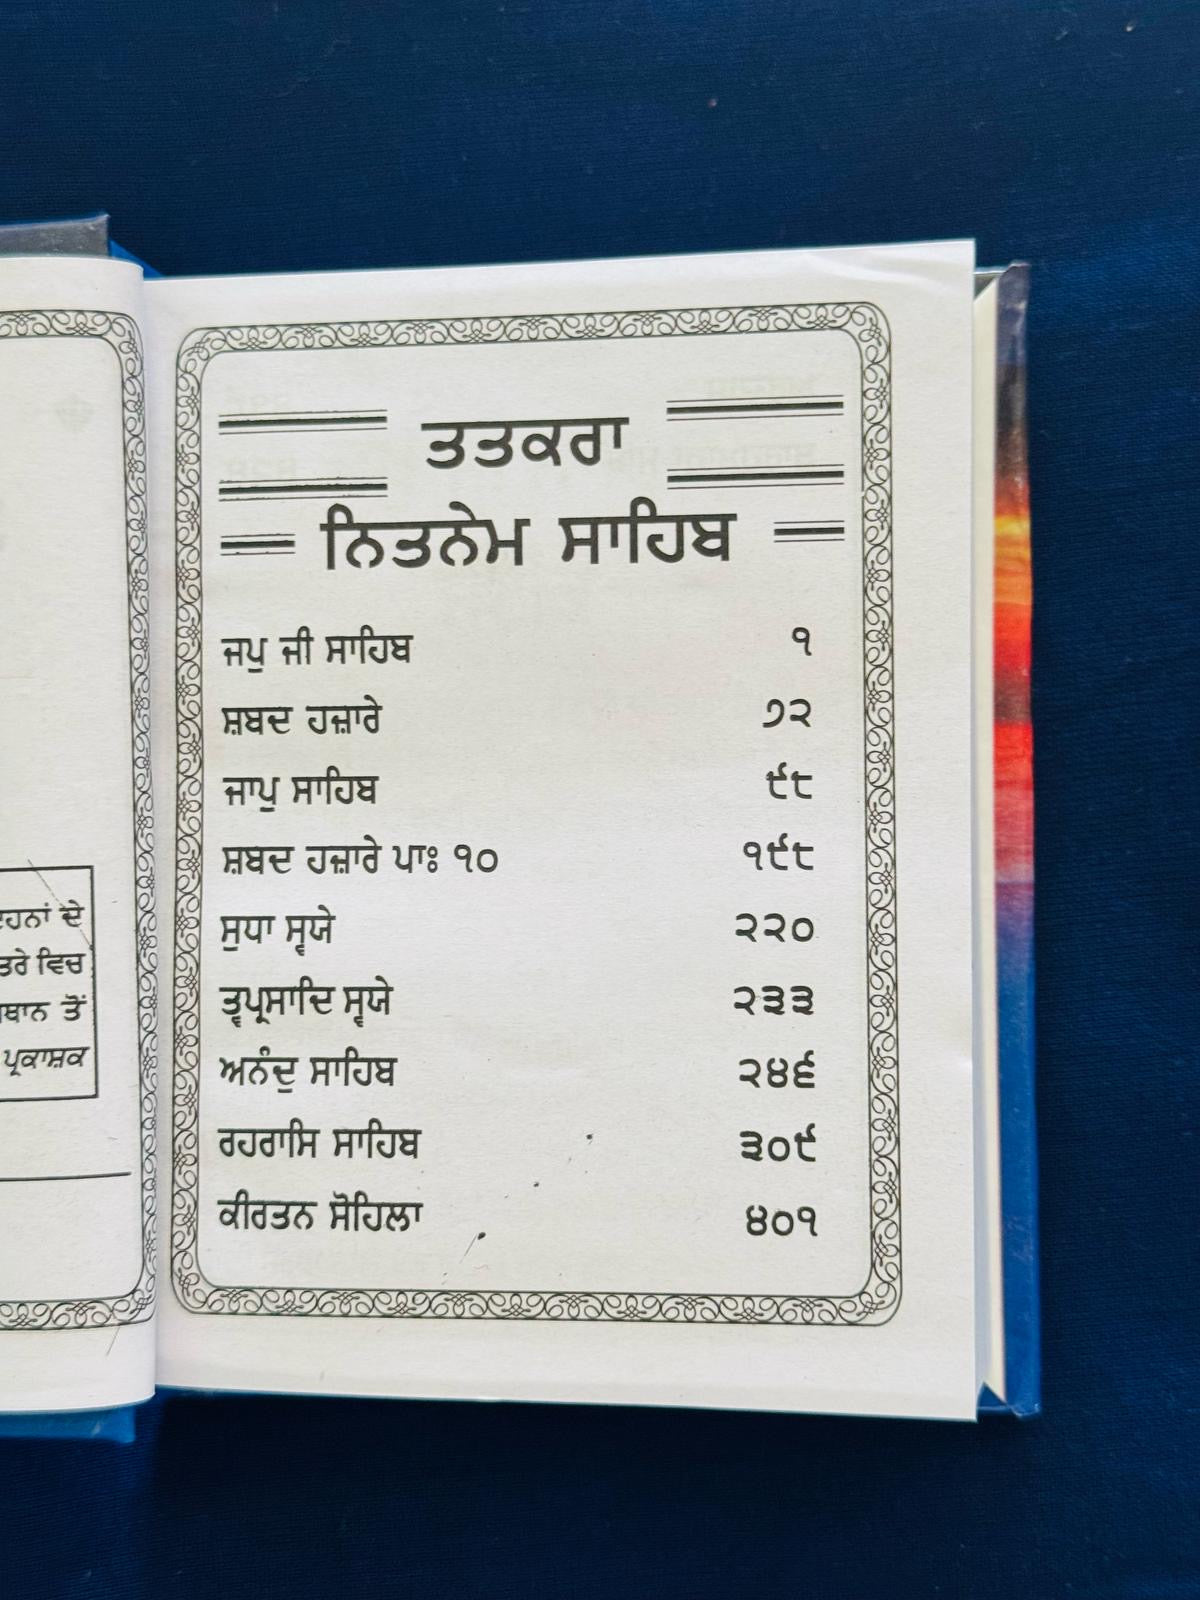 ਹਨਾਂ ਦੇ
ਤਰੇ ਵਿਚ
ਥਾਨ ਤੋਂ
ਪ੍ਰਕਾਸ਼ਕ
ਤਤਕਰਾ
ਨਿਤਨੇਮ ਸਾਹਿਬ
ਜਪੁ ਜੀ ਸਾਹਿਬ ੧
ਸ਼ਬਦ ਹਜ਼ਾਰੇ ੭੨
ਜਾਪੁ ਸਾਹਿਬ ੯੮
ਸ਼ਬਦ ਹਜ਼ਾਰੇ ਪਾਃ ੧੦ ੧੯੮
ਸੁਧਾ ਸ੍ਵਯੇ ੨੨੦
ਤ੍ਵਪ੍ਰਸਾਦਿ ਸ੍ਵਯੇ ੨੩੩
ਅਨੰਦੁ ਸਾਹਿਬ ੨੪੬
ਰਹਰਾਸਿ ਸਾਹਿਬ ੩੦੯
ਕੀਰਤਨ ਸੋਹਿਲਾ ੪੦੧